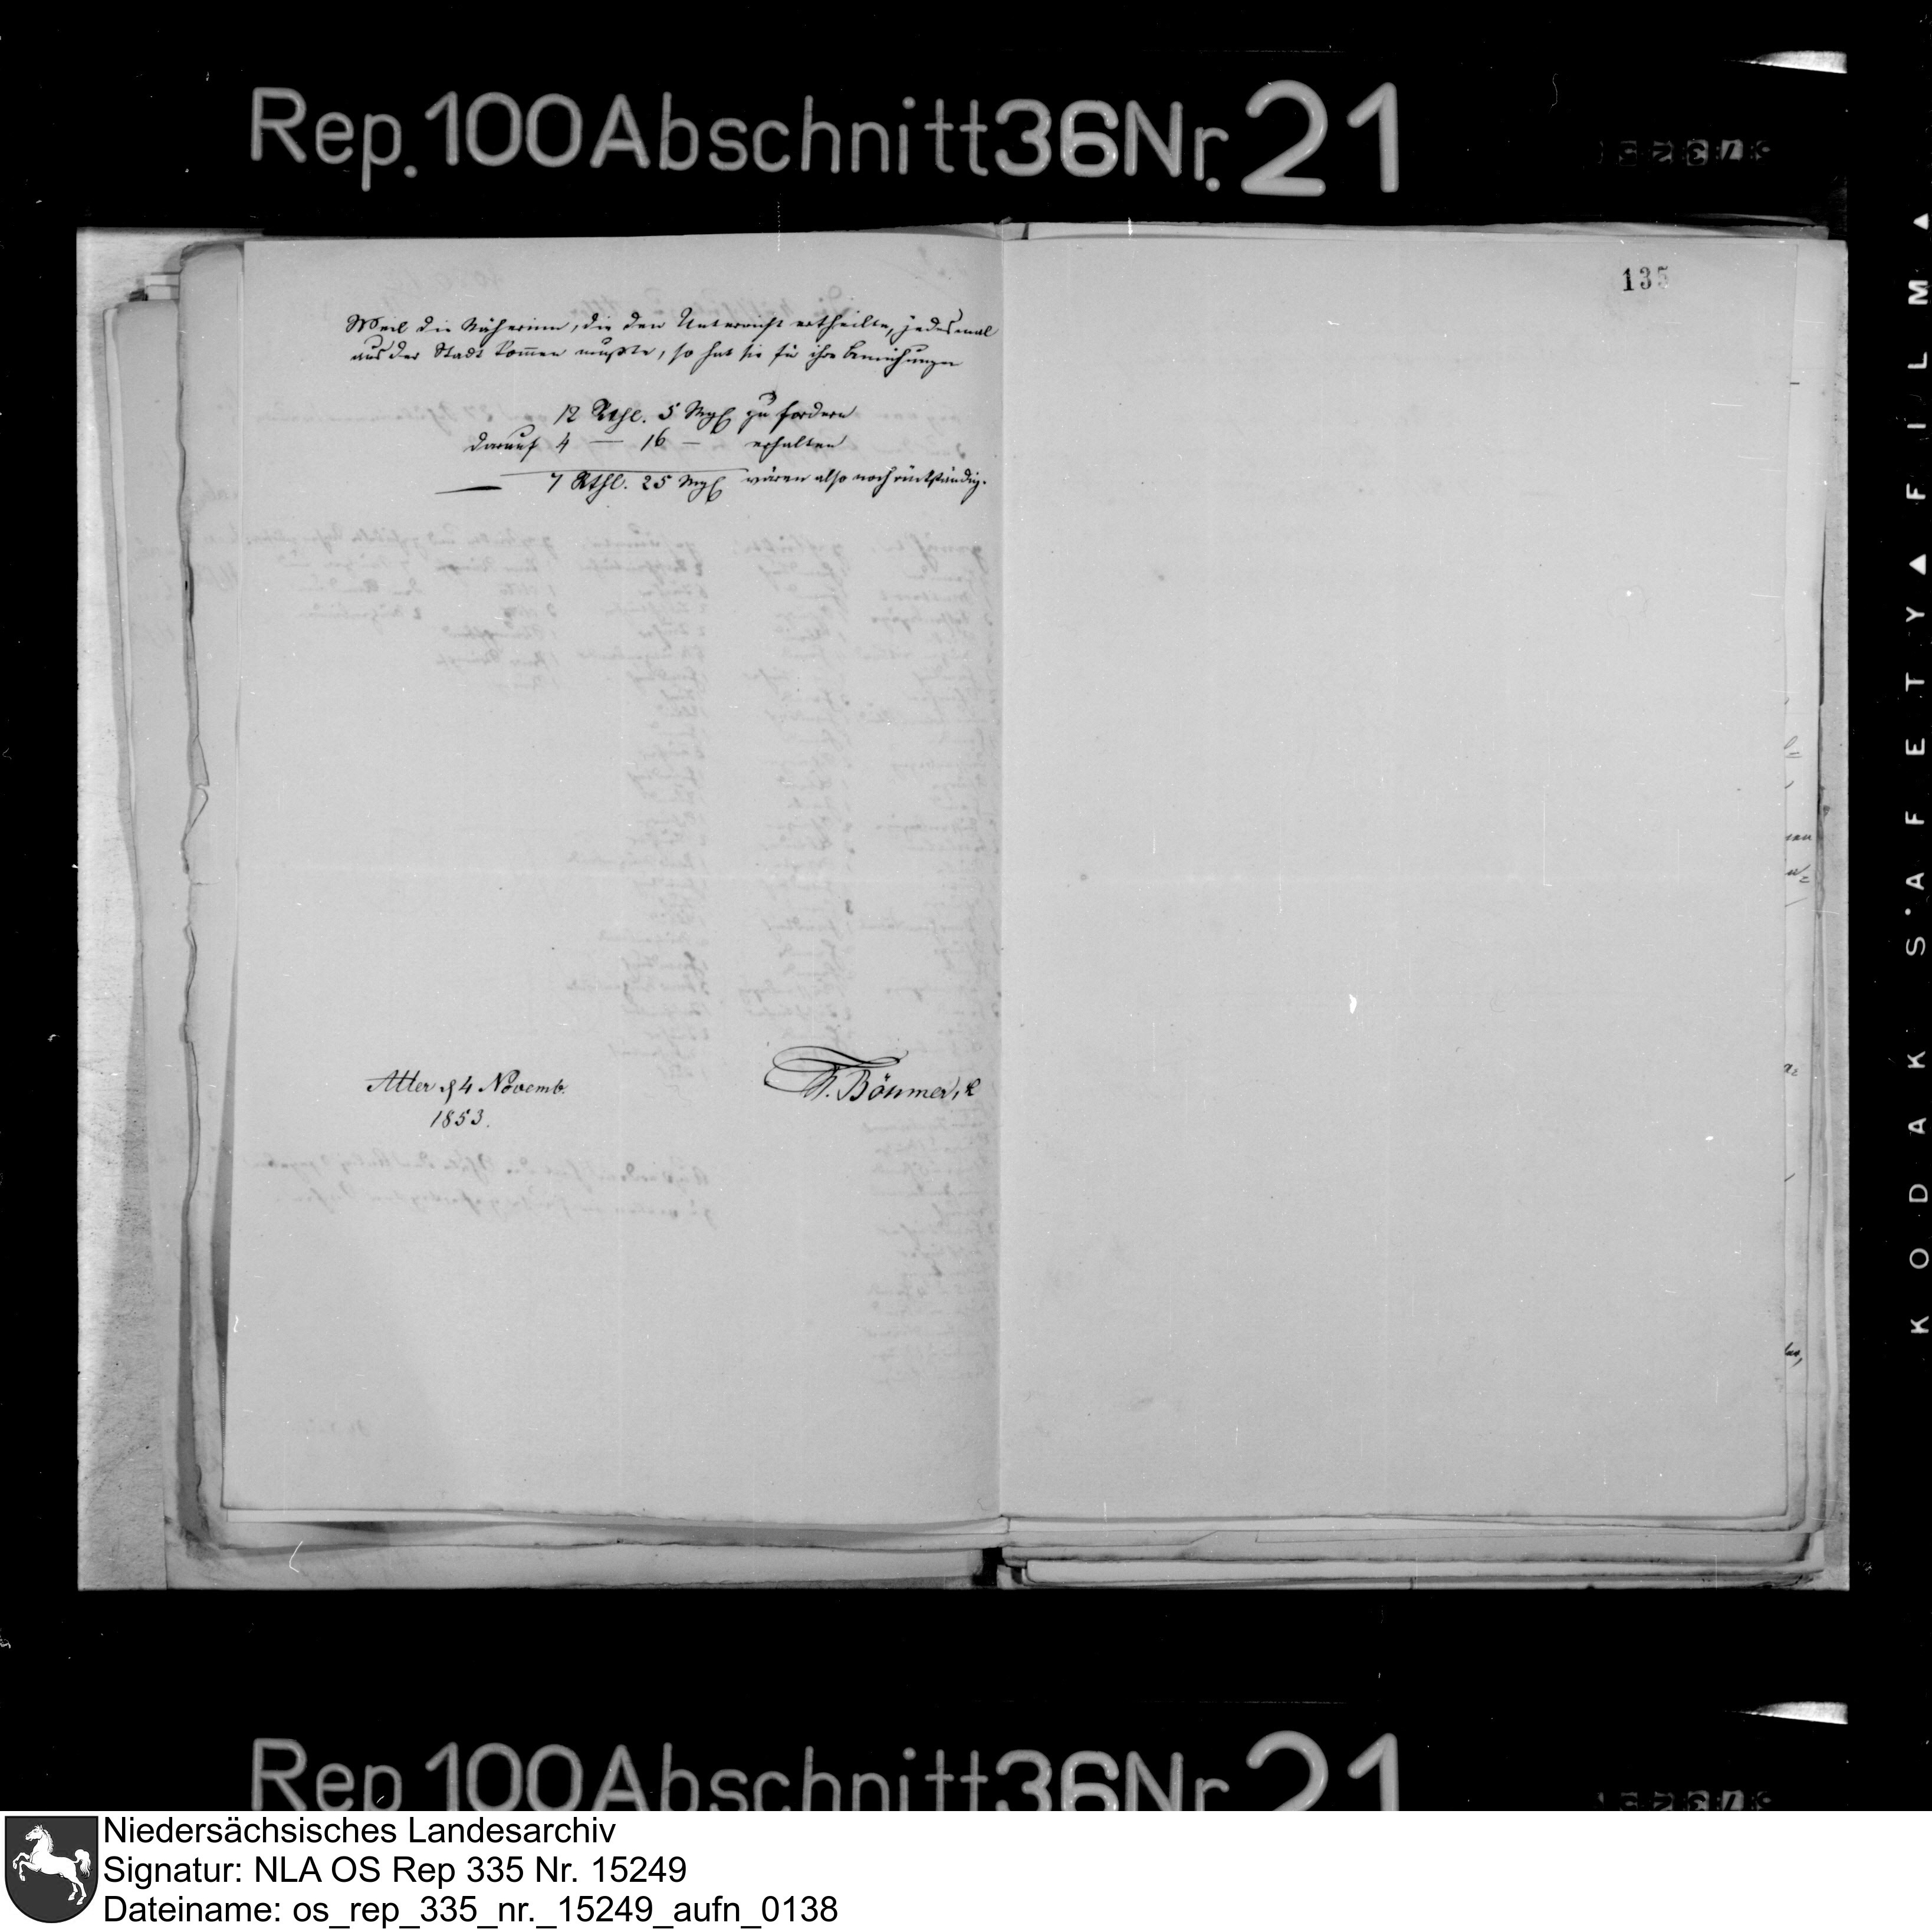 Rep. 100 Abschnitt 36 Nr. 21
135
Weil die Näherinn, die den Unterricht ertheilte, jedesmal
aus der Stadt kommen mußte, so hat sie für ihre Bemühungen
12 Rthl. 5 Mgl zu fordern
darauf 4 — 16 — erhalten
7 Rthl. 25 Mgl wären also noch rückständig.
Atter d 4 Novemb.
1853.
Bösmer,
KODAK SAFETY FILM
Rep 100 Abschnitt 36 Nr 21
Niedersächsisches Landesarchiv
Signatur: NLA OS Rep 335 Nr. 15249
Dateiname: os_rep_335_nr._15249_aufn_0138